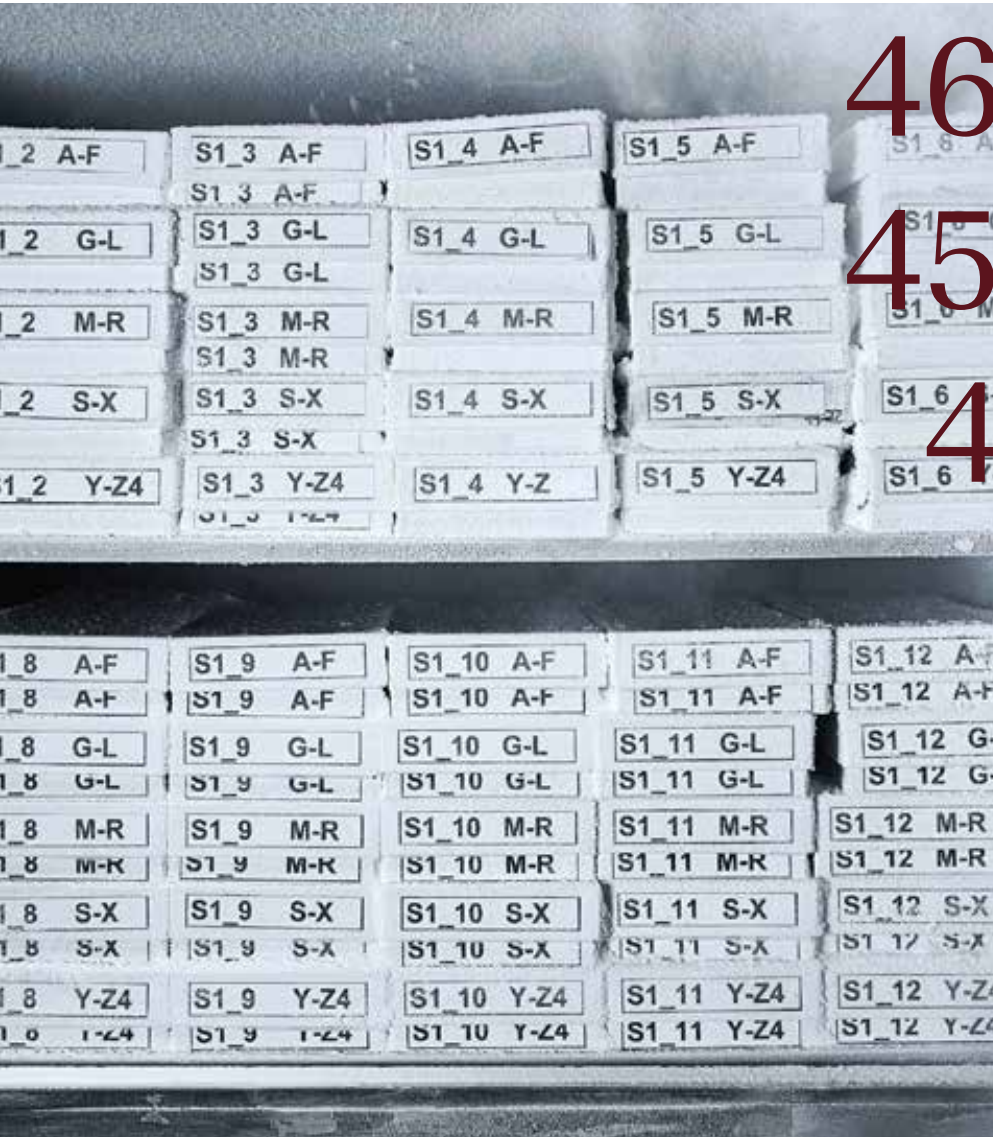 46
1_2 A-F S1_3 A-F S1_4 A-F S1_5 A-F S1_6 A
S1_3 A-F
1_2 G-L S1_3 G-L S1_4 G-L S1_5 G-L
S1_3 G-L
45
1_2 M-R S1_3 M-R S1_4 M-R S1_5 M-R S1_6 M
S1_3 M-R
_2 S-X S1_3 S-X S1_4 S-X S1_5 S-X S1_6
S1_3 S-X
4
S1_2 Y-Z4 S1_3 Y-Z4 S1_4 Y-Z S1_5 Y-Z4 S1_6 Y
S1_3 Y-Z4
1_8 A-F S1_9 A-F S1_10 A-F S1_11 A-F S1_12 A-F
1_8 A-F S1_9 A-F S1_10 A-F S1_11 A-F S1_12 A-F
_8 G-L S1_9 G-L S1_10 G-L S1_11 G-L S1_12 G-
1_8 G-L S1_9 G-L S1_10 G-L S1_11 G-L S1_12 G-
1_8 M-R S1_9 M-R S1_10 M-R S1_11 M-R S1_12 M-R
1_8 M-R S1_9 M-R S1_10 M-R S1_11 M-R S1_12 M-R
1_8 S-X S1_9 S-X S1_10 S-X S1_11 S-X S1_12 S-X
1_8 S-X S1_9 S-X S1_10 S-X S1_11 S-X S1_12 S-X
1_8 Y-Z4 S1_9 Y-Z4 S1_10 Y-Z4 S1_11 Y-Z4 S1_12 Y-Z4
1_8 Y-Z4 S1_9 Y-Z4 S1_10 Y-Z4 S1_11 Y-Z4 S1_12 Y-Z4